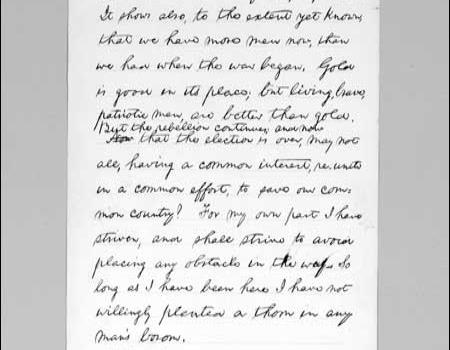 It shows also, to the extent yet known,
that we have more men now, than
we had when the war began. Gold
is good in its place; but living, brave,
patriotic men, are better than gold.
But the rebellion continues; and now
Now that the election is over, may not
all, having a common interest, re-unite
in a common effort, to save our com-
mon country? For my own part I have
striven, and shall strive to avoid
placing any obstacle in the way. So
long as I have been here I have not
willingly planted a thorn in any
man's bosom.